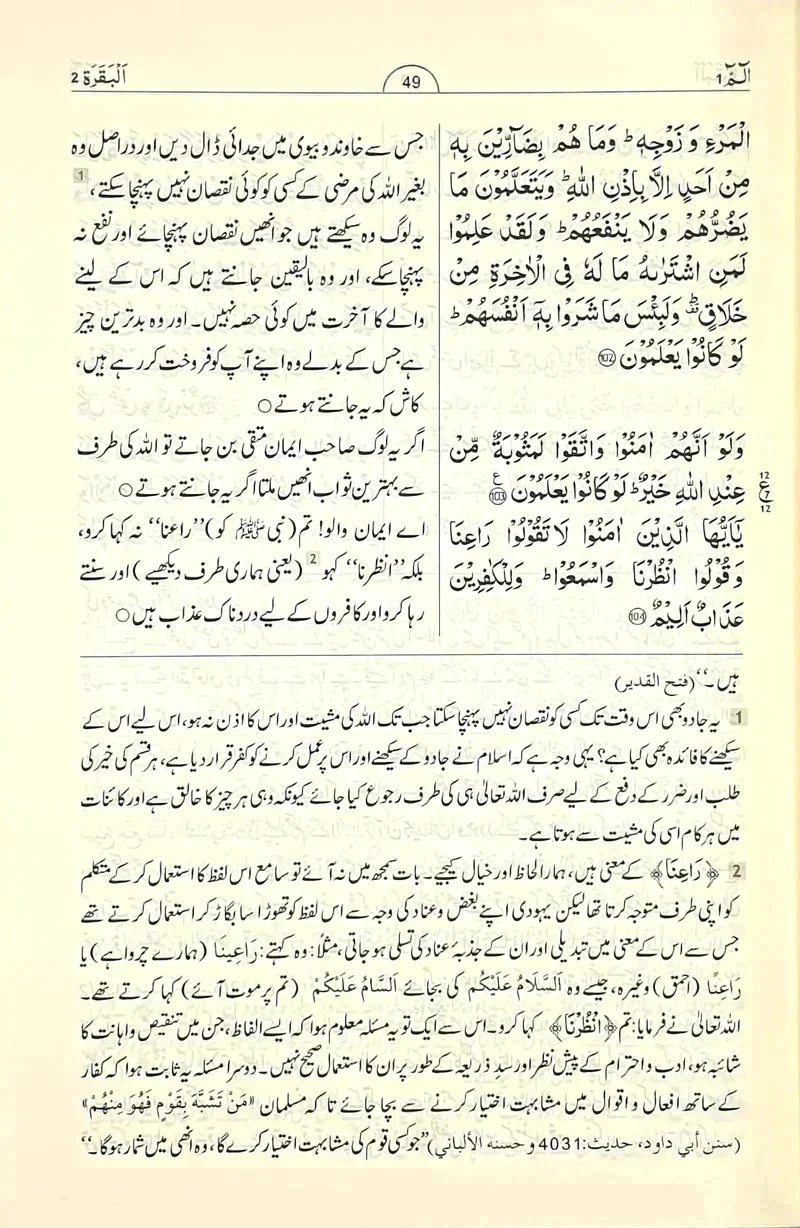 الٓمّٓ 1
49
اَلْبَقَرَة 2
الْمَرْءِ وَ زَوْجِهٖ ؕ وَمَا هُمْ بِضَآرِّيْنَ بِهٖ
مِنْ اَحَدٍ اِلَّا بِاِذْنِ اللّٰهِ ؕ وَيَتَعَلَّمُوْنَ مَا
يَضُرُّهُمْ وَلَا يَنْفَعُهُمْ ؕ وَلَقَدْ عَلِمُوْا
لَمَنِ اشْتَرٰىهُ مَا لَهٗ فِى الْاٰخِرَةِ مِنْ
خَلَاقٍ ۛؕ وَلَبِئْسَ مَا شَرَوْا بِهٖۤ اَنْفُسَهُمْ ؕ
لَوْ كَانُوْا يَعْلَمُوْنَ ۝102
وَلَوْ اَنَّهُمْ اٰمَنُوْا وَاتَّقَوْا لَمَثُوْبَةٌ مِّنْ
عِنْدِ اللّٰهِ خَيْرٌ ؕ لَوْ كَانُوْا يَعْلَمُوْنَ ۝103 ع
12
ع
7
12
يٰۤاَيُّهَا الَّذِيْنَ اٰمَنُوْا لَا تَقُوْلُوْا رَاعِنَا
وَقُوْلُوا انْظُرْنَا وَاسْمَعُوْا ؕ وَلِلْكٰفِرِيْنَ
عَذَابٌ اَلِيْمٌ ۝104
جس سے خاوند و بیوی میں جدائی ڈال دیں اور دراصل وہ
بغیر اللہ کی مرضی کے کسی کو کوئی نقصان نہیں پہنچا سکتے، 1
یہ لوگ وہ سیکھتے ہیں جو انھیں نقصان پہنچائے اور نفع نہ
پہنچا سکے، اور وہ بالیقین جانتے ہیں کہ اس کے لینے
والے کا آخرت میں کوئی حصہ نہیں۔ اور وہ بدترین چیز
ہے جس کے بدلے وہ اپنے آپ کو فروخت کر رہے ہیں،
کاش کہ یہ جانتے ہوتے ○
اگر یہ لوگ صاحب ایمان متقی بن جاتے تو اللہ کی طرف
سے بہترین ثواب انھیں ملتا اگر یہ جانتے ہوتے ○
اے ایمان والو! تم (نبی ﷺ کو) ’’راعنا‘‘ نہ کہا کرو،
بلکہ ’’انظرنا‘‘ کہو 2 (یعنی ہماری طرف دیکھیے) اور سنتے
رہا کرو اور کافروں کے لیے دردناک عذاب ہیں ○
ہیں۔‘‘ (فتح القدیر)
1 یہ جادو بھی اس وقت تک کسی کو نقصان نہیں پہنچا سکتا جب تک اللہ کی مشیت اور اس کا اذن نہ ہو، اس لیے اس کے
سیکھنے کا فائدہ بھی کیا ہے؟ یہی وجہ ہے کہ اسلام نے جادو کے سیکھنے اور اس پر عمل کرنے کو کفر قرار دیا ہے، ہر قسم کی خیر کی
طلب اور ضرر کے دفع کے لیے صرف اللہ تعالیٰ ہی کی طرف رجوع کیا جائے کیونکہ وہی ہر چیز کا خالق ہے اور کائنات
میں ہر کام اسی کی مشیت سے ہوتا ہے۔
2 ﴿رَاعِنَا﴾ کے معنی ہیں، ہمارا لحاظ اور خیال کیجیے۔ بات سمجھ میں نہ آئے تو سامع اس لفظ کا استعمال کر کے متکلم
کو اپنی طرف متوجہ کرتا تھا لیکن یہودی اپنے بغض و عناد کی وجہ سے اس لفظ کو تھوڑا سا بگاڑ کر استعمال کرتے تھے
جس سے اس کے معنی میں تبدیلی اور ان کے جذبۂ عناد کی تسلی ہو جاتی، مثلًا: وہ کہتے: رَاعِيْنَا (ہمارے چرواہے) یا
رَاعِنًا (احمق) وغیرہ، جیسے وہ اَلسَّلَامُ عَلَيْكُم کی بجائے اَلسَّامُ عَلَيْكُمْ (تم پر موت آئے) کہا کرتے تھے۔
اللہ تعالیٰ نے فرمایا: تم ﴿انْظُرْنَا﴾ کہا کرو۔ اس سے ایک تو یہ مسئلہ معلوم ہوا کہ ایسے الفاظ، جن میں تنقیص و اہانت کا
شائبہ ہو، ادب و احترام کے پیش نظر اور سدِ ذریعہ کے طور پر ان کا استعمال صحیح نہیں۔ دوسرا مسئلہ یہ ثابت ہوا کہ کفار
کے ساتھ افعال و اقوال میں مشابہت اختیار کرنے سے بچا جائے تا کہ مسلمان «مَنْ تَشَبَّهَ بِقَوْمٍ فَهُوَ مِنْهُمْ»
(سنن أبي داود، حدیث: 4031 و حسنه الألباني) ’’جو کسی قوم کی مشابہت اختیار کرے گا، وہ انھی میں شمار ہوگا۔‘‘